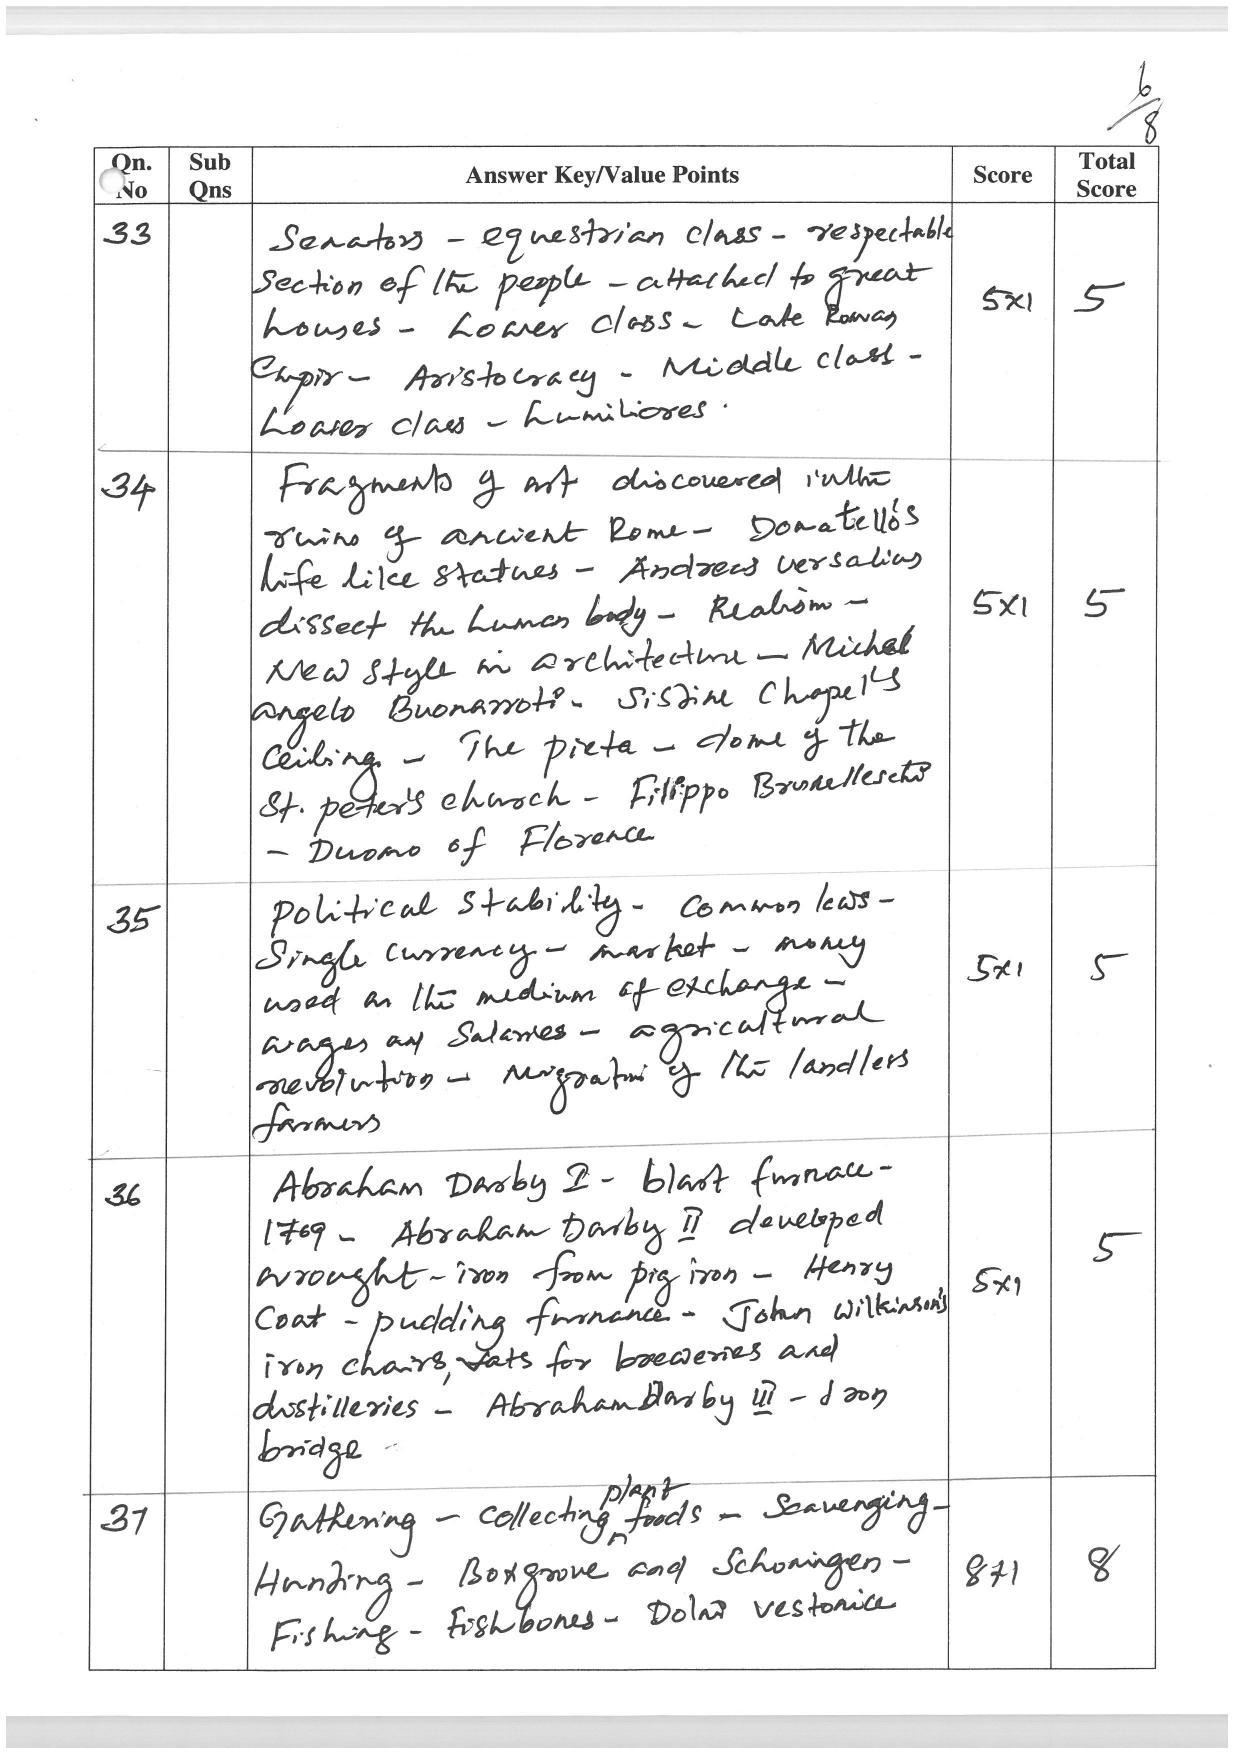 6/8
Qn. No Sub Qns Answer Key/Value Points Score Total Score
33 Senators - equestrian class - respectable
section of the people - attached to great
houses - Lower class - Late Roman 5x1 5
Empir - Aristocracy - Middle class -
Lower class - humiliores.
34 Fragments of art discovered in the
ruins of ancient Rome - Donatello's
life like statues - Andreas versalius
dissect the human body - Realism - 5x1 5
New style in architecture - Michel
angelo Buonarroti - Sistine Chapel's
Ceiling - The pieta - dome of the
St. peter's church - Filippo Brunelleschi
- Duomo of Florence
35 political stability - common laws -
Single currency - market - money
used as the medium of exchange - 5x1 5
wages and Salaries - agricultural
revolution - Migration of the landlers
farmers
36 Abraham Darby I - blast furnace -
1709 - Abraham Darby II developed
wrought-iron from pig iron - Henry 5x1 5
Coat - pudding furnance - John Wilkinson's
iron chairs, vats for breweries and
distilleries - Abraham Darby III - Iron
bridge
37 Gathering - collecting plant foods - Scavenging -
Hunting - Boxgrove and Schoningen - 8x1 8
Fishing - Fishbones - Dolni vestonice